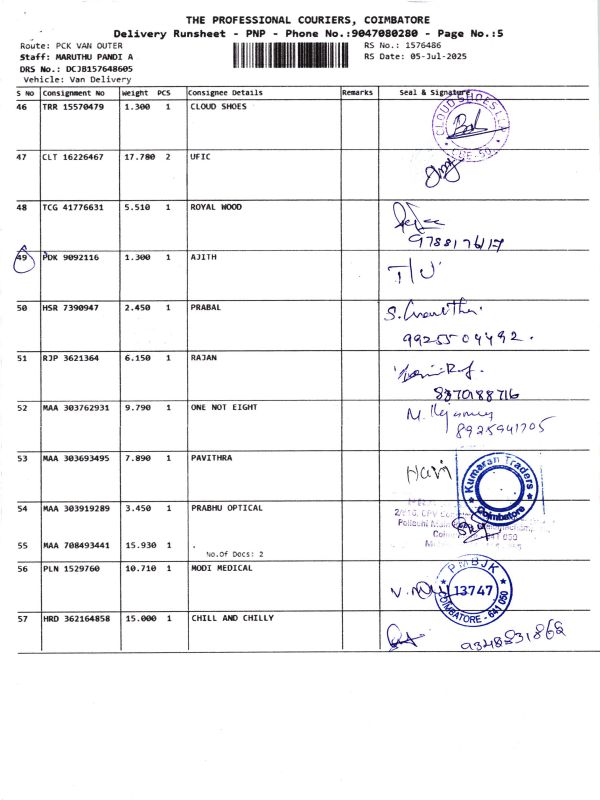 THE PROFESSIONAL COURIERS, COIMBATORE
Delivery Runsheet - PNP - Phone No.:9047080280 - Page No.:5
Route: PCK VAN OUTER RS No.: 1576486
Staff: MARUTHU PANDI A RS Date: 05-Jul-2025
DRS No.: DCJB157648605
Vehicle: Van Delivery
S No Consignment No Weight PCS Consignee Details Remarks Seal & Signature
46 TRR 15570479 1.300 1 CLOUD SHOES
CLOUD SHOES LLP
47 CLT 16226467 17.780 2 UFIC
48 TCG 41776631 5.510 1 ROYAL WOOD
49 PDK 9092116 1.300 1 AJITH
50 HSR 7390947 2.450 1 PRABAL
9925504492.
51 RJP 3621364 6.150 1 RAJAN
8870188716
52 MAA 303762931 9.790 1 ONE NOT EIGHT
8925941705
53 MAA 303693495 7.890 1 PAVITHRA
Hari
Kumaran Traders
Coimbatore
54 MAA 303919289 3.450 1 PRABHU OPTICAL
55 MAA 708493441 15.930 1 .
No.Of Docs: 2
56 PLN 1529760 10.710 1 MODI MEDICAL
PMBJK
13747
COIMBATORE - 641 050
57 HRD 362164858 15.000 1 CHILL AND CHILLY